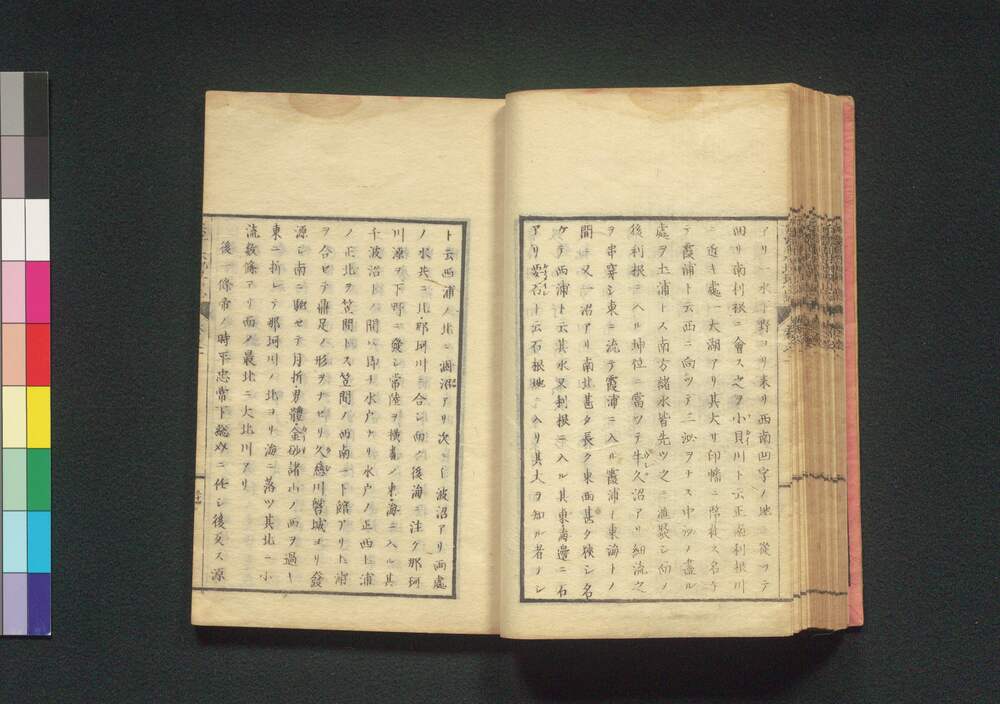 アリ一水下野ヨリ来リ西南凹字ノ地ニ從ツテ
回リ南利根ニ會ス之ヲ小貝川ト云正南利根川
ニ近キ處一大湖アリ其大リ印幡ニ階級ス名ケ
テ霞浦ト云西ニ向ツテ二沁ヲナス中沙ノ盡ル
處ヲ土浦トス南方諸水皆先ツ之ニ滙歇シ而ノ
後利根ニ入ル坤位ニ當ツテ牛久沼アリ細流之
ヲ串穿シ東ニ流テ霞浦ニ入ル霞浦ト東海トノ
間ニ又一沼アリ南北甚タ長ク東西甚タ狹シ名
ケテ西浦ト云其水又利根ニ入ル其東海邉ニ石
アリ要石ト云石根地ニ入リ其大ヲ知ル者ナシ
ト云西浦ノ北ニ涸沼アリ次ニ千波沼アリ両處
ノ水共ニ北那珂川ニ合シ而ノ後海ニ注ク那珂
川源ヲ下野ニ發シ常陸ヲ横畫ノ東海ニ入ル其
千波沼トノ間ハ即チ水戸ナリ水戸ノ正西土浦
ノ正北ヲ笠間トス笠間ノ西南ニ下館アリ土浦
ヲ合セテ鼎足ノ形ヲナセリ久慈川磐城ヨリ發
源シ南ニ馳セテ月折男體金砂諸山ノ西ヲ過ー
東ニ折レテ那珂川ノ北ヨリ海ニ落ツ其北ニ小
流數條アリ而ノ最北ニ大北川アリ
後一條帝ノ時平忠常下総介ニ任シ後叉ス源